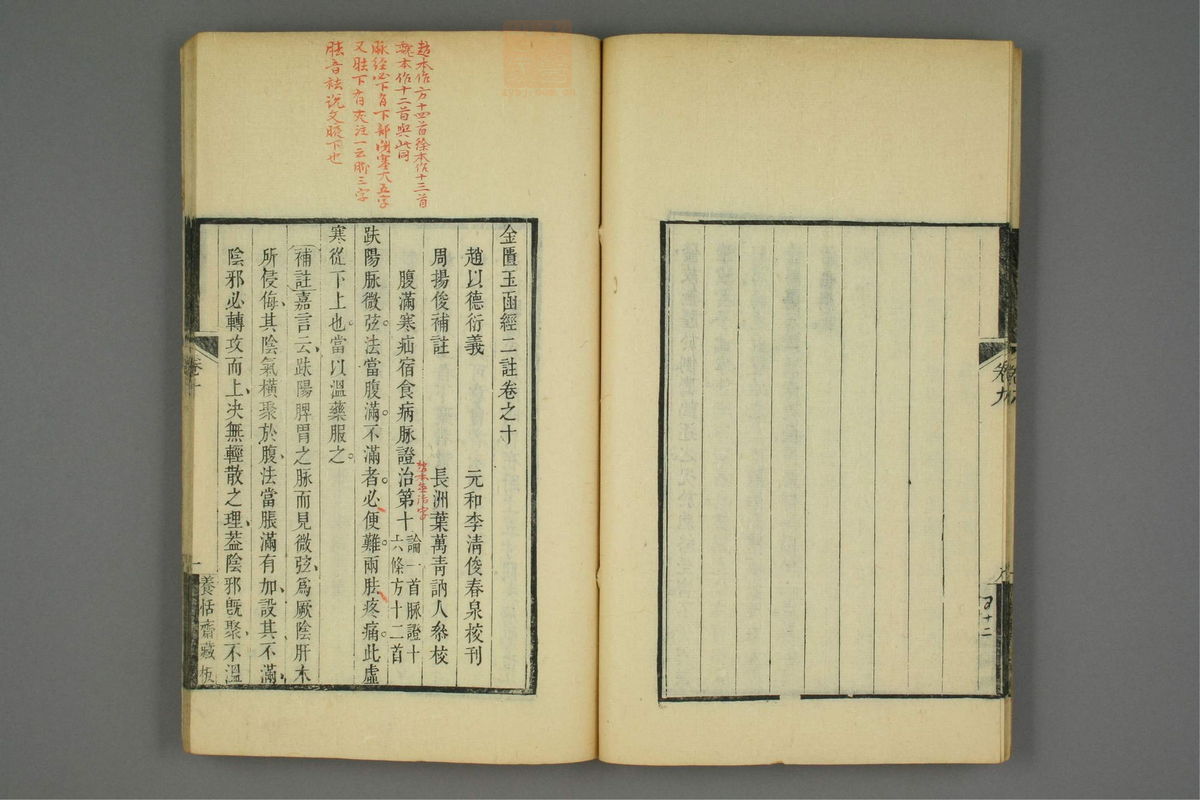 趙本作方十四首徐本作十三首
魏本作十二首與此同
脉經必下有下部閉塞大五字
又胠下有夾注一云脚三字
胠音祛說文腋下也
金匱玉函經二註卷之十
趙以德衍義 元和李清俊春泉校刊
周揚俊補註 長洲葉萬青訥人叅校
腹滿寒疝宿食病脉證治第十 論一首脉證十
六條方十二首
趙本無治字
趺陽脉微弦法當腹滿不滿者必便難兩胠疼痛此虛
寒從下上也當以溫藥服之
補註嘉言云趺陽脾胃之脉而見微弦爲厥陰肝木
所侵侮其陰氣橫聚於腹法當脹滿有加設其不滿
陰邪必轉攻而上决無輕散之理葢陰邪旣聚不溫
卷十
一
養恬齋藏板